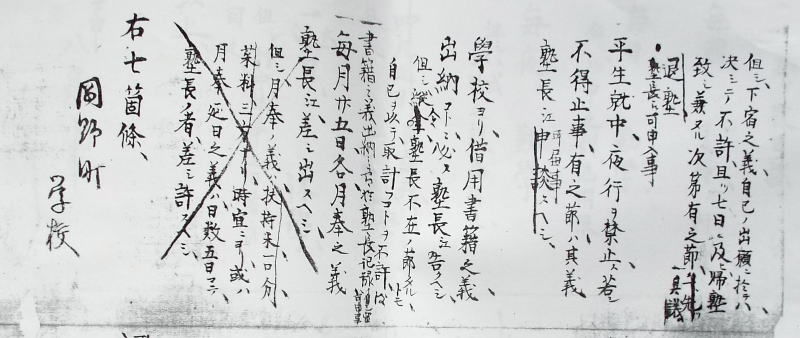 但シ下宿之義自己ノ出願ニ於テハ
決シテ不許且ツ七日ニ及ヒ帰塾
致シ兼タル次第有之節ハ
退塾
塾長ニ可申入事
平生就中夜行ヲ禁止ス若
不得止事有之節ハ其義
塾長江申談スヘシ
學校ヨリ借用書籍之義
出納トモニ必ス塾長江告スヘシ
但シ縦令塾長不在ノ節タルトモ
自己ヲ以テ取計フコトヲ不許
書籍之義出納之節於塾長記録
毎月廿五日各月奉之義
塾長江差シ出スヘシ
但シ月奉ノ義ハ扶持米一口分
菜料三 時宜ニヨリ或ハ
月奉延日之義ハ日数五日マテ
塾長ノ者差シ許スヘシ
右七箇條、
岡野町
学校